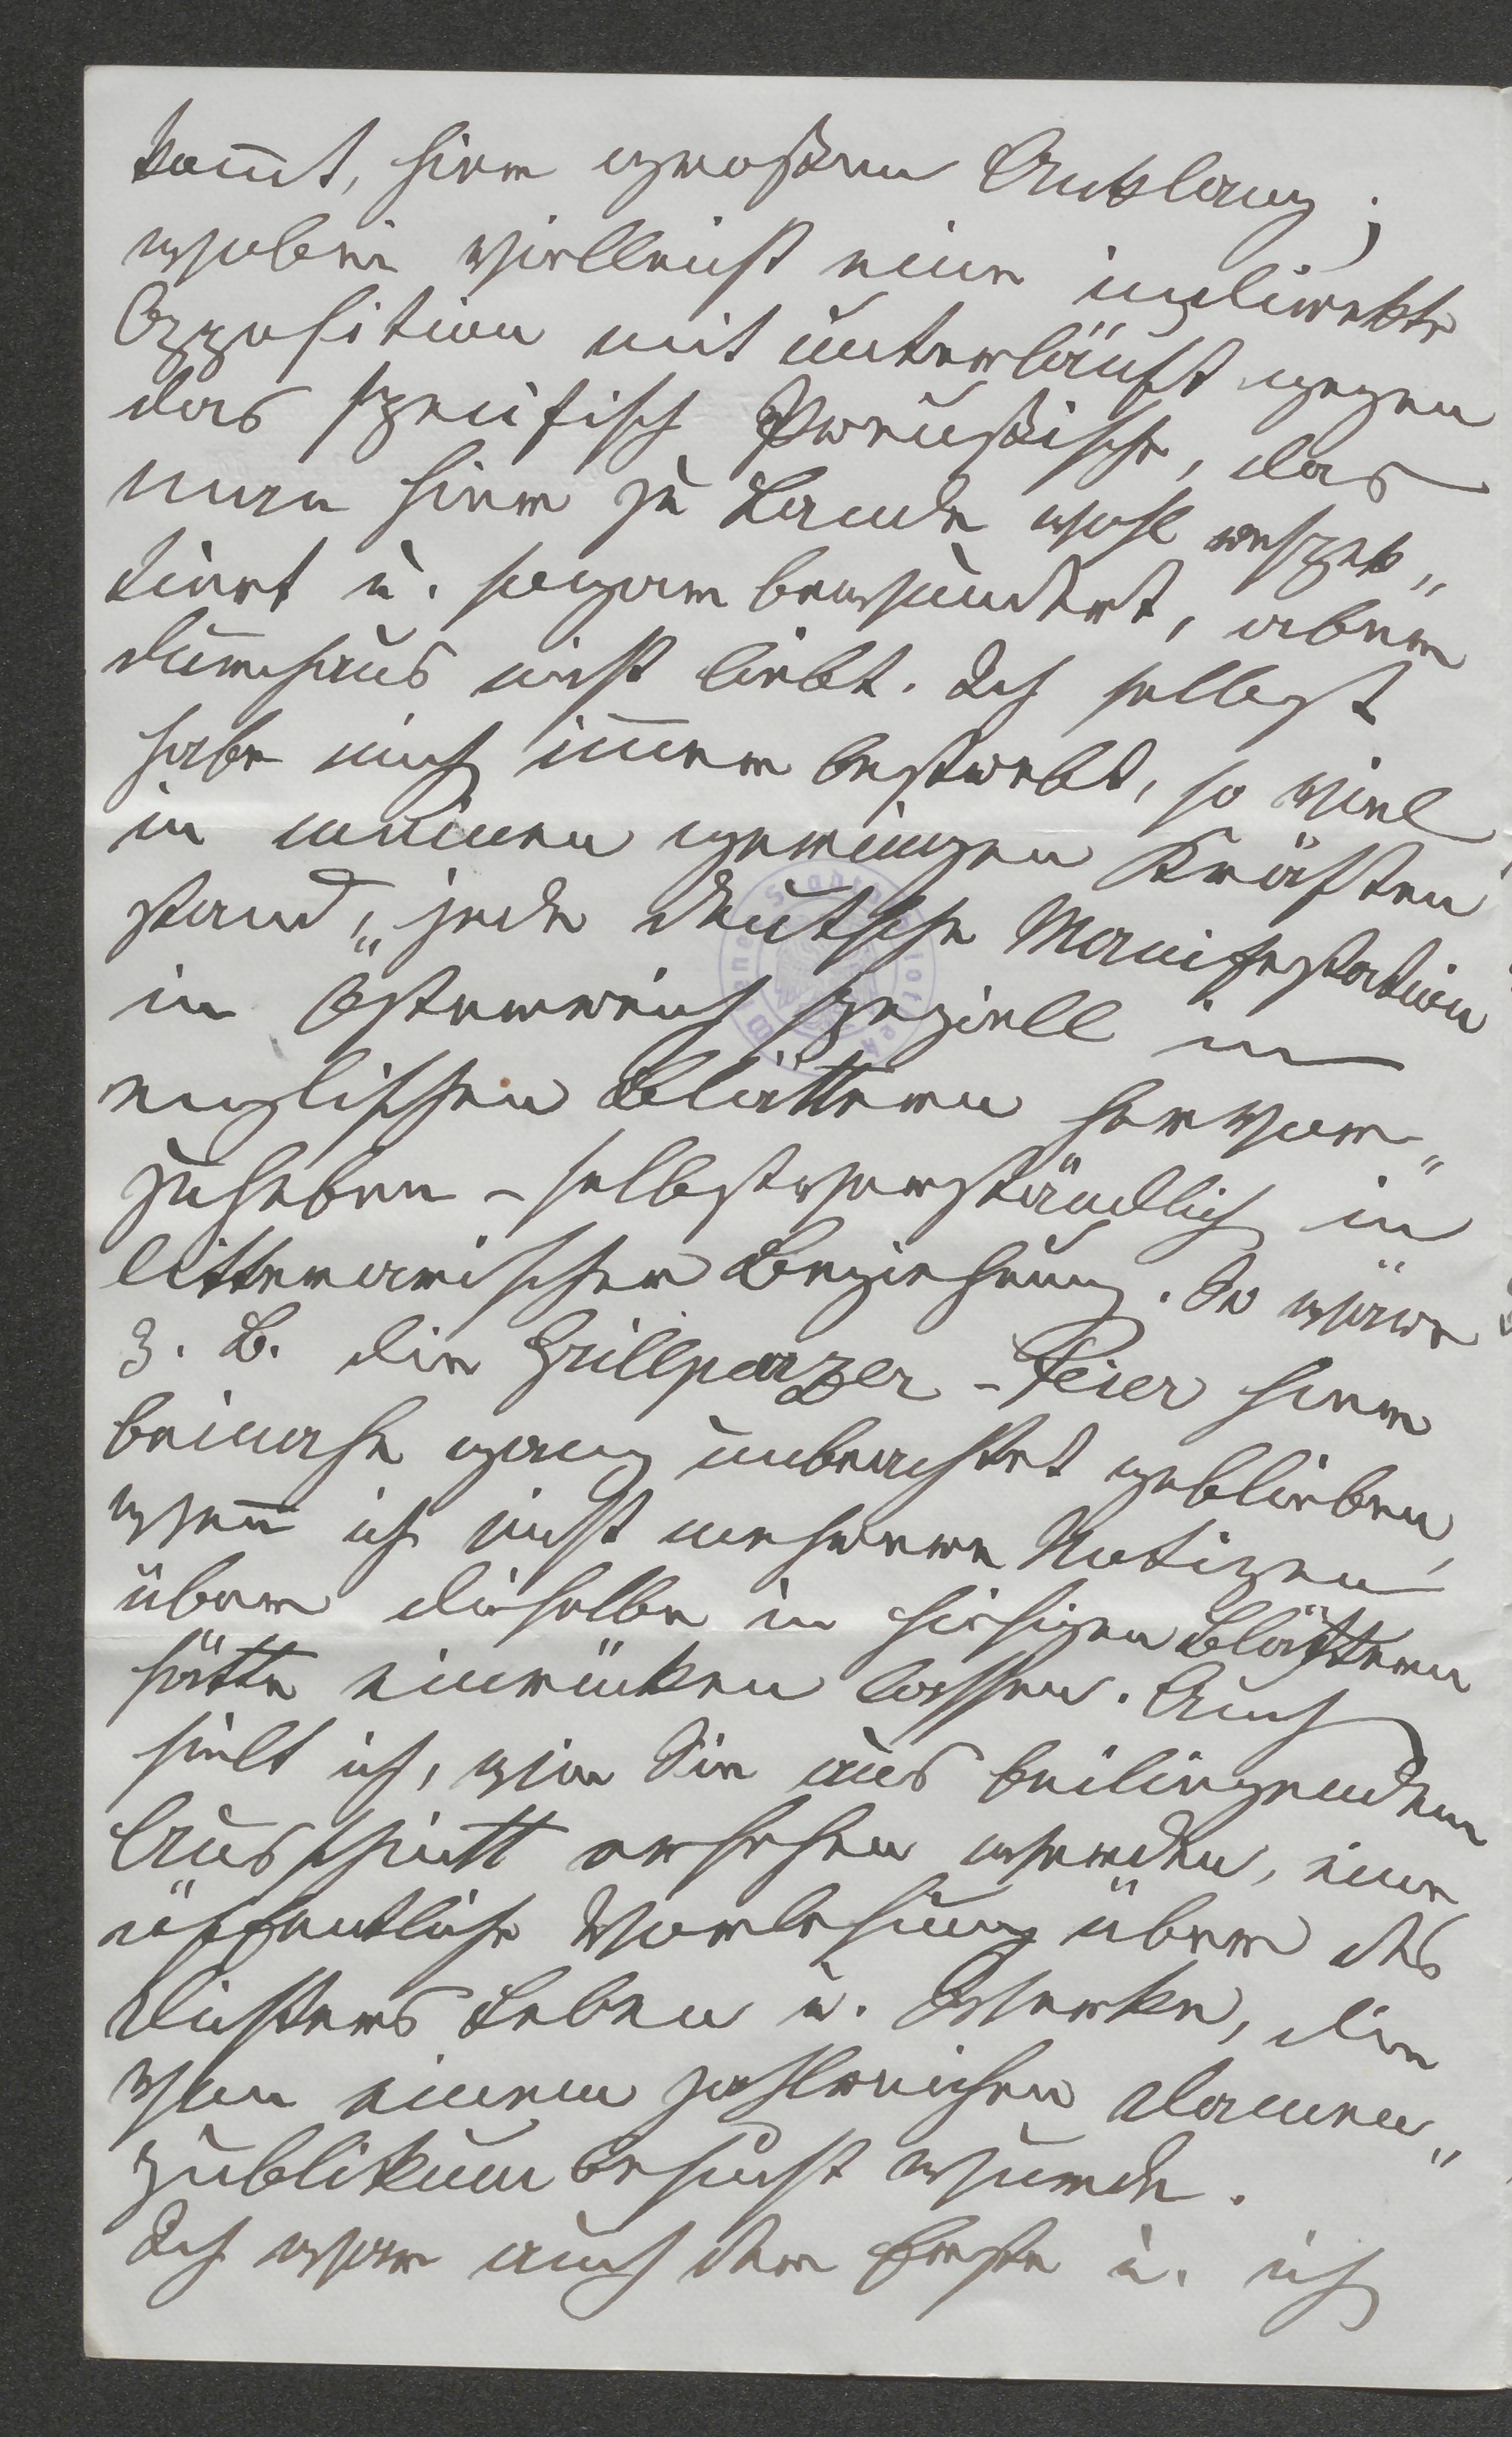 kommt, hier großen Anklang;
wobei vielleicht eine indirekte
Opposition mit unterläuft gegen
das spezifisch Preußische, das
man hier zu Lande wohl respek„
tiert u. sogar bewundert, aber
durchaus nicht liebt. Ich selbst
habe mich immer bestrebt, so viel
in meinen geringen Kräften
stand, jede deutsche Manifestation
in Österreich speziell in
englischen Blättern hervor„
zuheben – selbstverständlich in
litterarischer Beziehung. So wäre
z. B. die Grillparzer-Feier hier
beinahe ganz unbeachtet geblieben,
wenn ich nicht mehrere Notizen
über dieselbe in hiesigen Blättern
hätte einrücken lassen. Auch
hielt ich, wie Sie aus beiliegendem
Ausschnitt ersehen werden, eine
öffentliche Vorlesung über des
Dichters Leben u. Werke, die
von einem zahlreichen Damen„
publikum besucht wurde.
Ich war auch der Erste u. ich